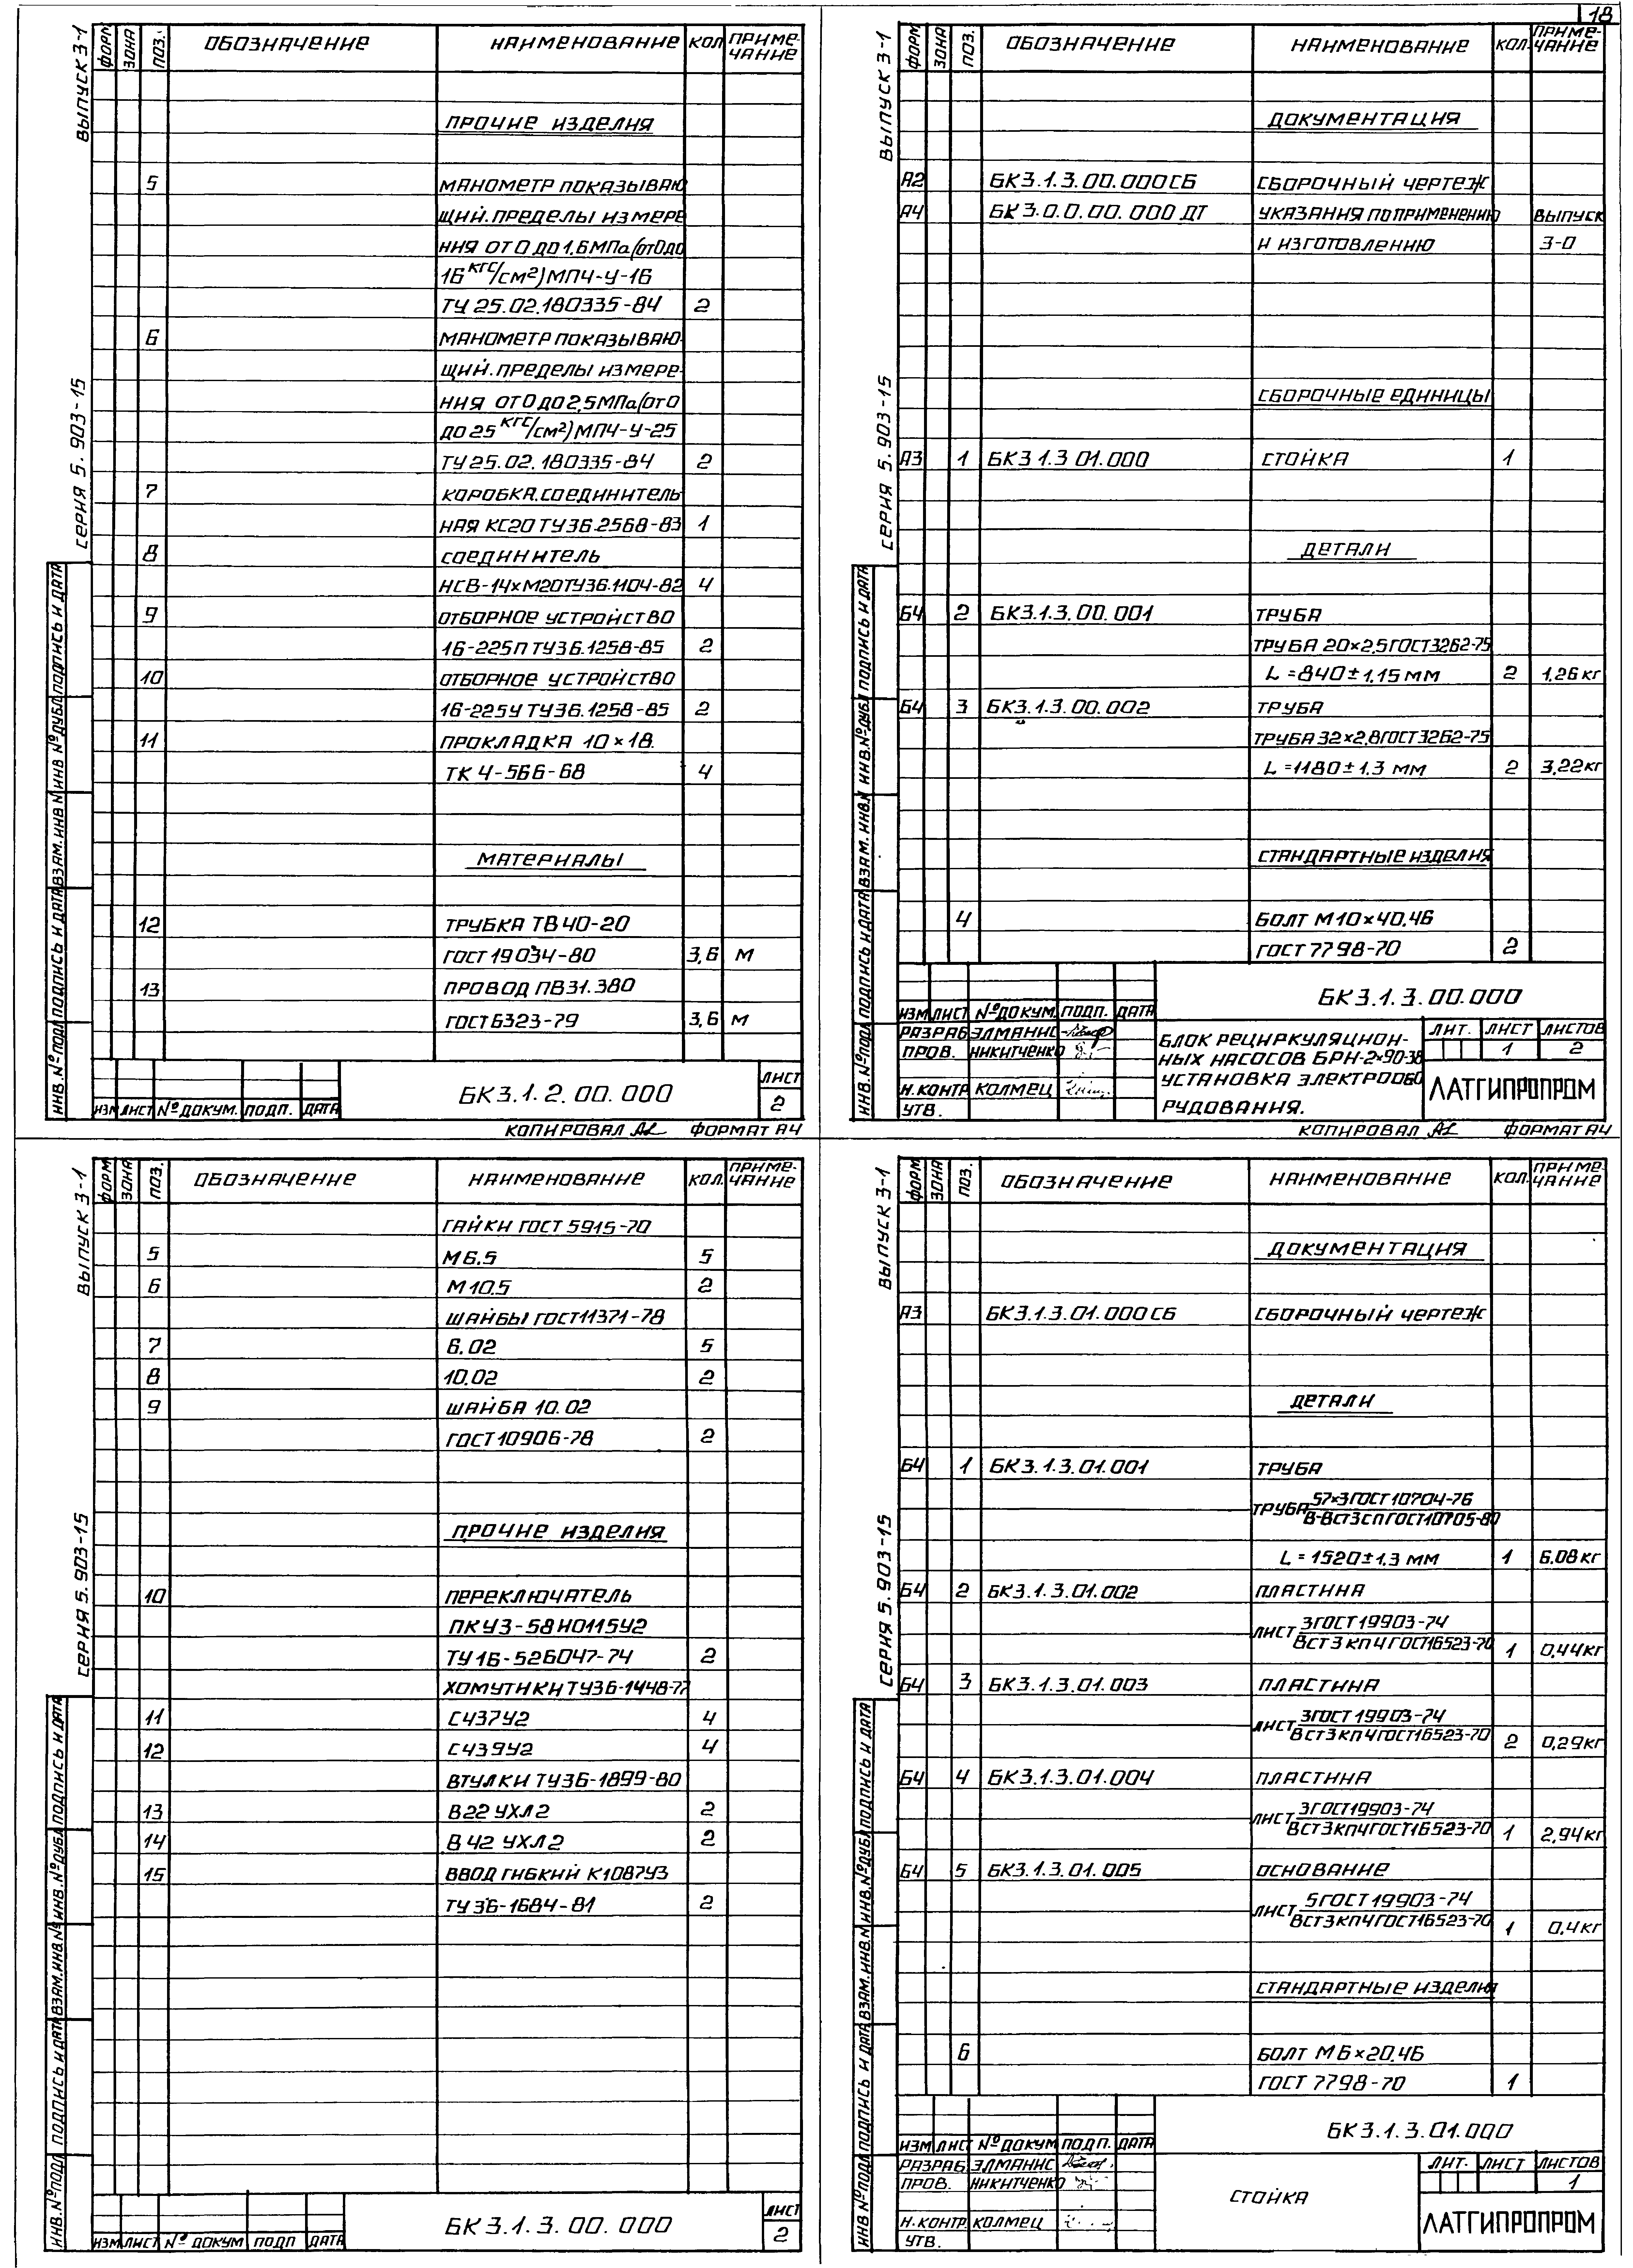 18
ВЫПУСК 3-1
СЕРИЯ 5.903-15
ФОРМ ЗОНА ПОЗ. ОБОЗНАЧЕНИЕ НАИМЕНОВАНИЕ КОЛ ПРИМЕ-
ЧАНИЕ
ПРОЧИЕ ИЗДЕЛИЯ
5 МАНОМЕТР ПОКАЗЫВАЮ
ЩИЙ. ПРЕДЕЛЫ ИЗМЕРЕ
НИЯ ОТ 0 ДО 1,6 МПа (от 0 до
16 кгс/см²) МПЧ-У-16
ТУ 25.02.180335-84 2
6 МАНОМЕТР ПОКАЗЫВАЮ-
ЩИЙ. ПРЕДЕЛЫ ИЗМЕРЕ-
НИЯ ОТ 0 ДО 2,5 МПа (от 0
ДО 25 кгс/см²) МПЧ-У-25
ТУ 25.02.180335-84 2
7 КОРОБКА СОЕДИНИТЕЛЬ
НАЯ КС20 ТУ36.2568-83 1
8 СОЕДИНИТЕЛЬ
НСВ-14×М20ТУ36.1104-82 4
9 ОТБОРНОЕ УСТРОЙСТВО
16-225П ТУ36.1258-85 2
10 ОТБОРНОЕ УСТРОЙСТВО
16-225У ТУ36.1258-85 2
11 ПРОКЛАДКА 10×18.
ТК 4-566-68 4
МАТЕРИАЛЫ
12 ТРУБКА ТВ 40-20
ГОСТ 19034-80 3,6 М
13 ПРОВОД ПВ3 1.380
ГОСТ 6323-79 3,6 М
ИНВ. № ПОДЛ ПОДПИСЬ И ДАТА ВЗАМ. ИНВ № ИНВ № ДУБЛ ПОДПИСЬ И ДАТА
ИЗМ ЛИСТ № ДОКУМ. ПОДП. ДАТА
БК 3.1.2.00.000
ЛИСТ
2
КОПИРОВАЛ ФОРМАТ А4
ВЫПУСК 3-1
СЕРИЯ 5.903-15
ФОРМ ЗОНА ПОЗ. ОБОЗНАЧЕНИЕ НАИМЕНОВАНИЕ КОЛ. ПРИМЕ-
ЧАНИЕ
ДОКУМЕНТАЦИЯ
А2 БК3.1.3.00.000СБ СБОРОЧНЫЙ ЧЕРТЕЖ
А4 БК 3.0.0.00.000 ДТ УКАЗАНИЯ ПО ПРИМЕНЕНИЮ ВЫПУСК
И ИЗГОТОВЛЕНИЮ 3-0
СБОРОЧНЫЕ ЕДИНИЦЫ
А3 1 БК3 1.3 01.000 СТОЙКА 1
ДЕТАЛИ
Б4 2 БК3.1.3.00.001 ТРУБА
ТРУБА 20×2,5ГОСТ3262-75
L = 840 ± 1,15 мм 2 1,26 кг
Б4 3 БК3.1.3.00.002 ТРУБА
ТРУБА 32×2,8ГОСТ3262-75
L = 1180 ± 1.3 мм 2 3,22 кг
СТАНДАРТНЫЕ ИЗДЕЛИЯ
4 БОЛТ М10×40.46
ГОСТ 7798-70 2
ИНВ. № ПОДЛ ПОДПИСЬ И ДАТА ВЗАМ. ИНВ. № ИНВ. № ДУБЛ ПОДПИСЬ И ДАТА
БК 3.1.3.00.000
ИЗМ ЛИСТ № ДОКУМ. ПОДП. ДАТА
РАЗРАБ ЭЛМАНИС
ПРОВ. НИКИТЧЕНКО
Н.КОНТР КОЛМЕЦ
УТВ.
БЛОК РЕЦИРКУЛЯЦИОН-
НЫХ НАСОСОВ БРН-2×90-38
УСТАНОВКА ЭЛЕКТРООБО
РУДОВАНИЯ.
ЛИТ. ЛИСТ ЛИСТОВ
1 2
ЛАТГИПРОПРОМ
КОПИРОВАЛ ФОРМАТ А4
ВЫПУСК 3-1
СЕРИЯ 5.903-15
ФОРМ ЗОНА ПОЗ. ОБОЗНАЧЕНИЕ НАИМЕНОВАНИЕ КОЛ. ПРИМЕ-
ЧАНИЕ
ГАЙКИ ГОСТ 5915-70
5 М6.5 5
6 М10.5 2
ШАЙБЫ ГОСТ11371-78
7 6.02 5
8 10.02 2
9 ШАЙБА 10.02
ГОСТ 10906-78 2
ПРОЧИЕ ИЗДЕЛИЯ
10 ПЕРЕКЛЮЧАТЕЛЬ
ПКУ3-58И0115У2
ТУ16-526047-74 2
ХОМУТИКИ ТУ36-1448-77
11 С437У2 4
12 С439У2 4
ВТУЛКИ ТУ36-1899-80
13 В22 УХЛ2 2
14 В 42 УХЛ2 2
15 ВВОД ГИБКИЙ К1087У3
ТУ 36-1684-81 2
ИНВ. № ПОДЛ ПОДПИСЬ И ДАТА ВЗАМ. ИНВ. № ИНВ. № ДУБЛ ПОДПИСЬ И ДАТА
ИЗМ ЛИСТ № ДОКУМ ПОДП ДАТА
БК 3.1.3.00.000
ЛИСТ
2
ВЫПУСК 3-1
СЕРИЯ 5.903-15
ФОРМ ЗОНА ПОЗ. ОБОЗНАЧЕНИЕ НАИМЕНОВАНИЕ КОЛ. ПРИМЕ-
ЧАНИЕ
ДОКУМЕНТАЦИЯ
А3 БК3.1.3.01.000СБ СБОРОЧНЫЙ ЧЕРТЕЖ
ДЕТАЛИ
Б4 1 БК3.1.3.01.001 ТРУБА
ТРУБА 57×3ГОСТ 10704-76
В-ВСТ3СП ГОСТ10705-80
L = 1520 ± 1.3 мм 1 6.08 кг
Б4 2 БК3.1.3.01.002 ПЛАСТИНА
ЛИСТ 3ГОСТ19903-74
ВСТ3 КП4 ГОСТ16523-70 1 0,44кг
Б4 3 БК3.1.3.01.003 ПЛАСТИНА
ЛИСТ 3ГОСТ 19903-74
ВСТ3 КП4ГОСТ16523-70 2 0,29кг
Б4 4 БК3.1.3.01.004 ПЛАСТИНА
ЛИСТ 3ГОСТ19903-74
ВСТ3КП4ГОСТ16523-70 1 2,94кг
Б4 5 БК3.1.3.01.005 ОСНОВАНИЕ
ЛИСТ 5ГОСТ19903-74
ВСТ3КП4ГОСТ16523-70 1 0,4 кг
СТАНДАРТНЫЕ ИЗДЕЛИЯ
6 БОЛТ М6×20.46
ГОСТ 7798-70 1
ИНВ № ПОДЛ ПОДПИСЬ И ДАТА ВЗАМ. ИНВ.№ ИНВ.№ДУБЛ ПОДПИСЬ И ДАТА
БК 3.1.3.01.000
ИЗМ ЛИСТ № ДОКУМ ПОДП. ДАТА
РАЗРАБ. ЭЛМАНИС
ПРОВ. НИКИТЧЕНКО
Н.КОНТР. КОЛМЕЦ
УТВ.
СТОЙКА
ЛИТ. ЛИСТ ЛИСТОВ
1
ЛАТГИПРОПРОМ